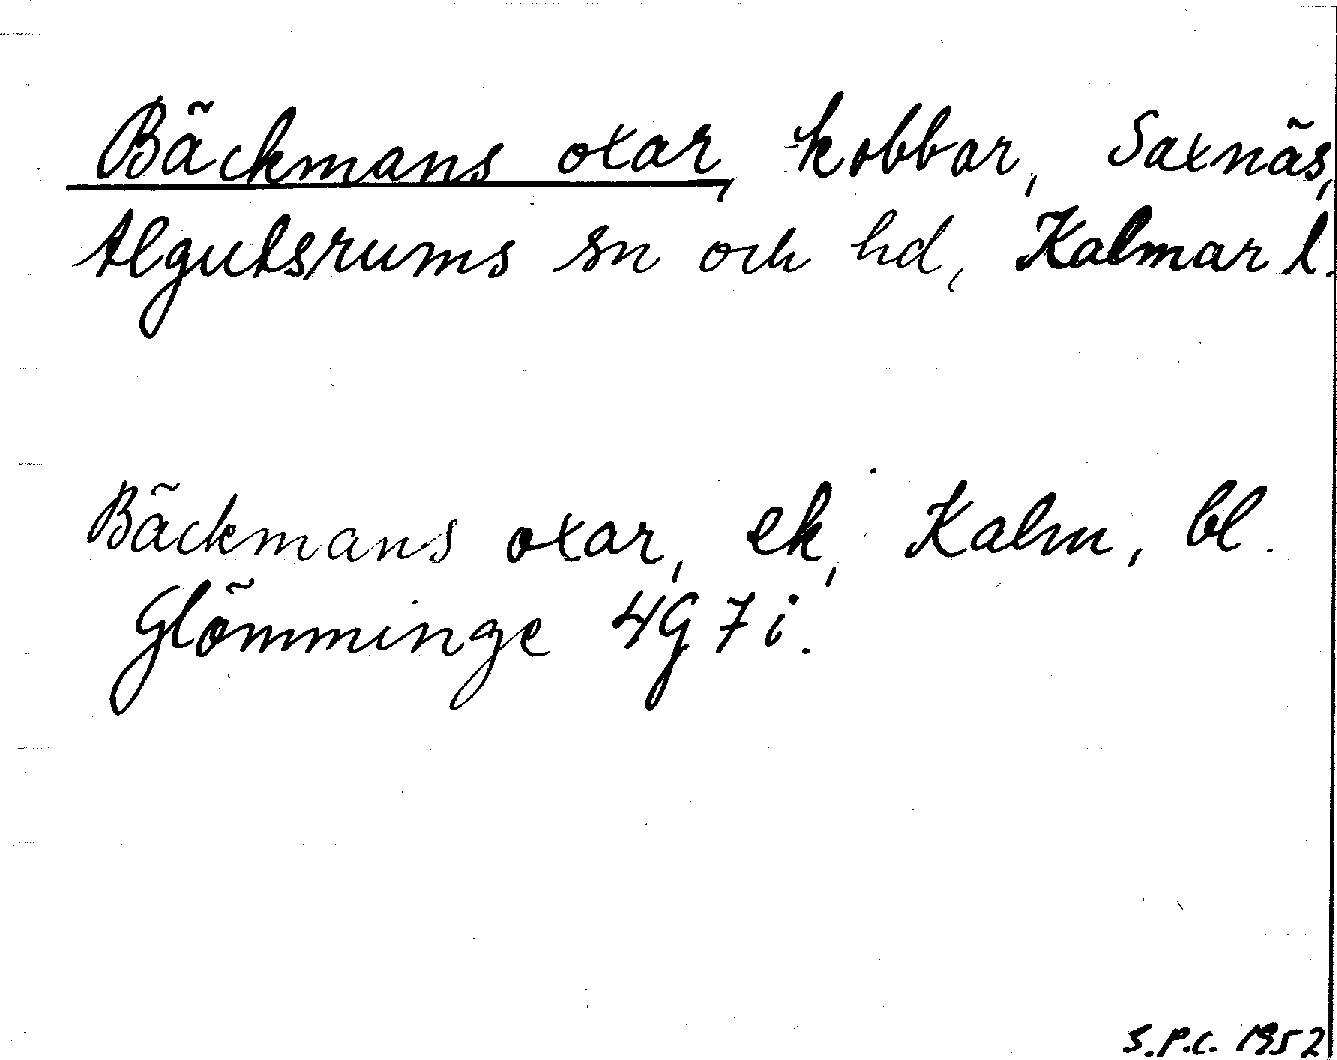 Bäckmans oxar, kobbar, Saxnäs,
Algutsrums sn och hd, Kalmar l.
Bäckmans oxar, ek, Kalm, bl.
Glömminge 4G7i.
S.P.C. 1952